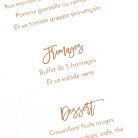 Aux
Pomme grenaille au
Et sa tomate grappe provençale
Fromages
Buffet de 5 fromages
Et sa salade verte
Dessert
Croustillant fruits rouges
café, thé